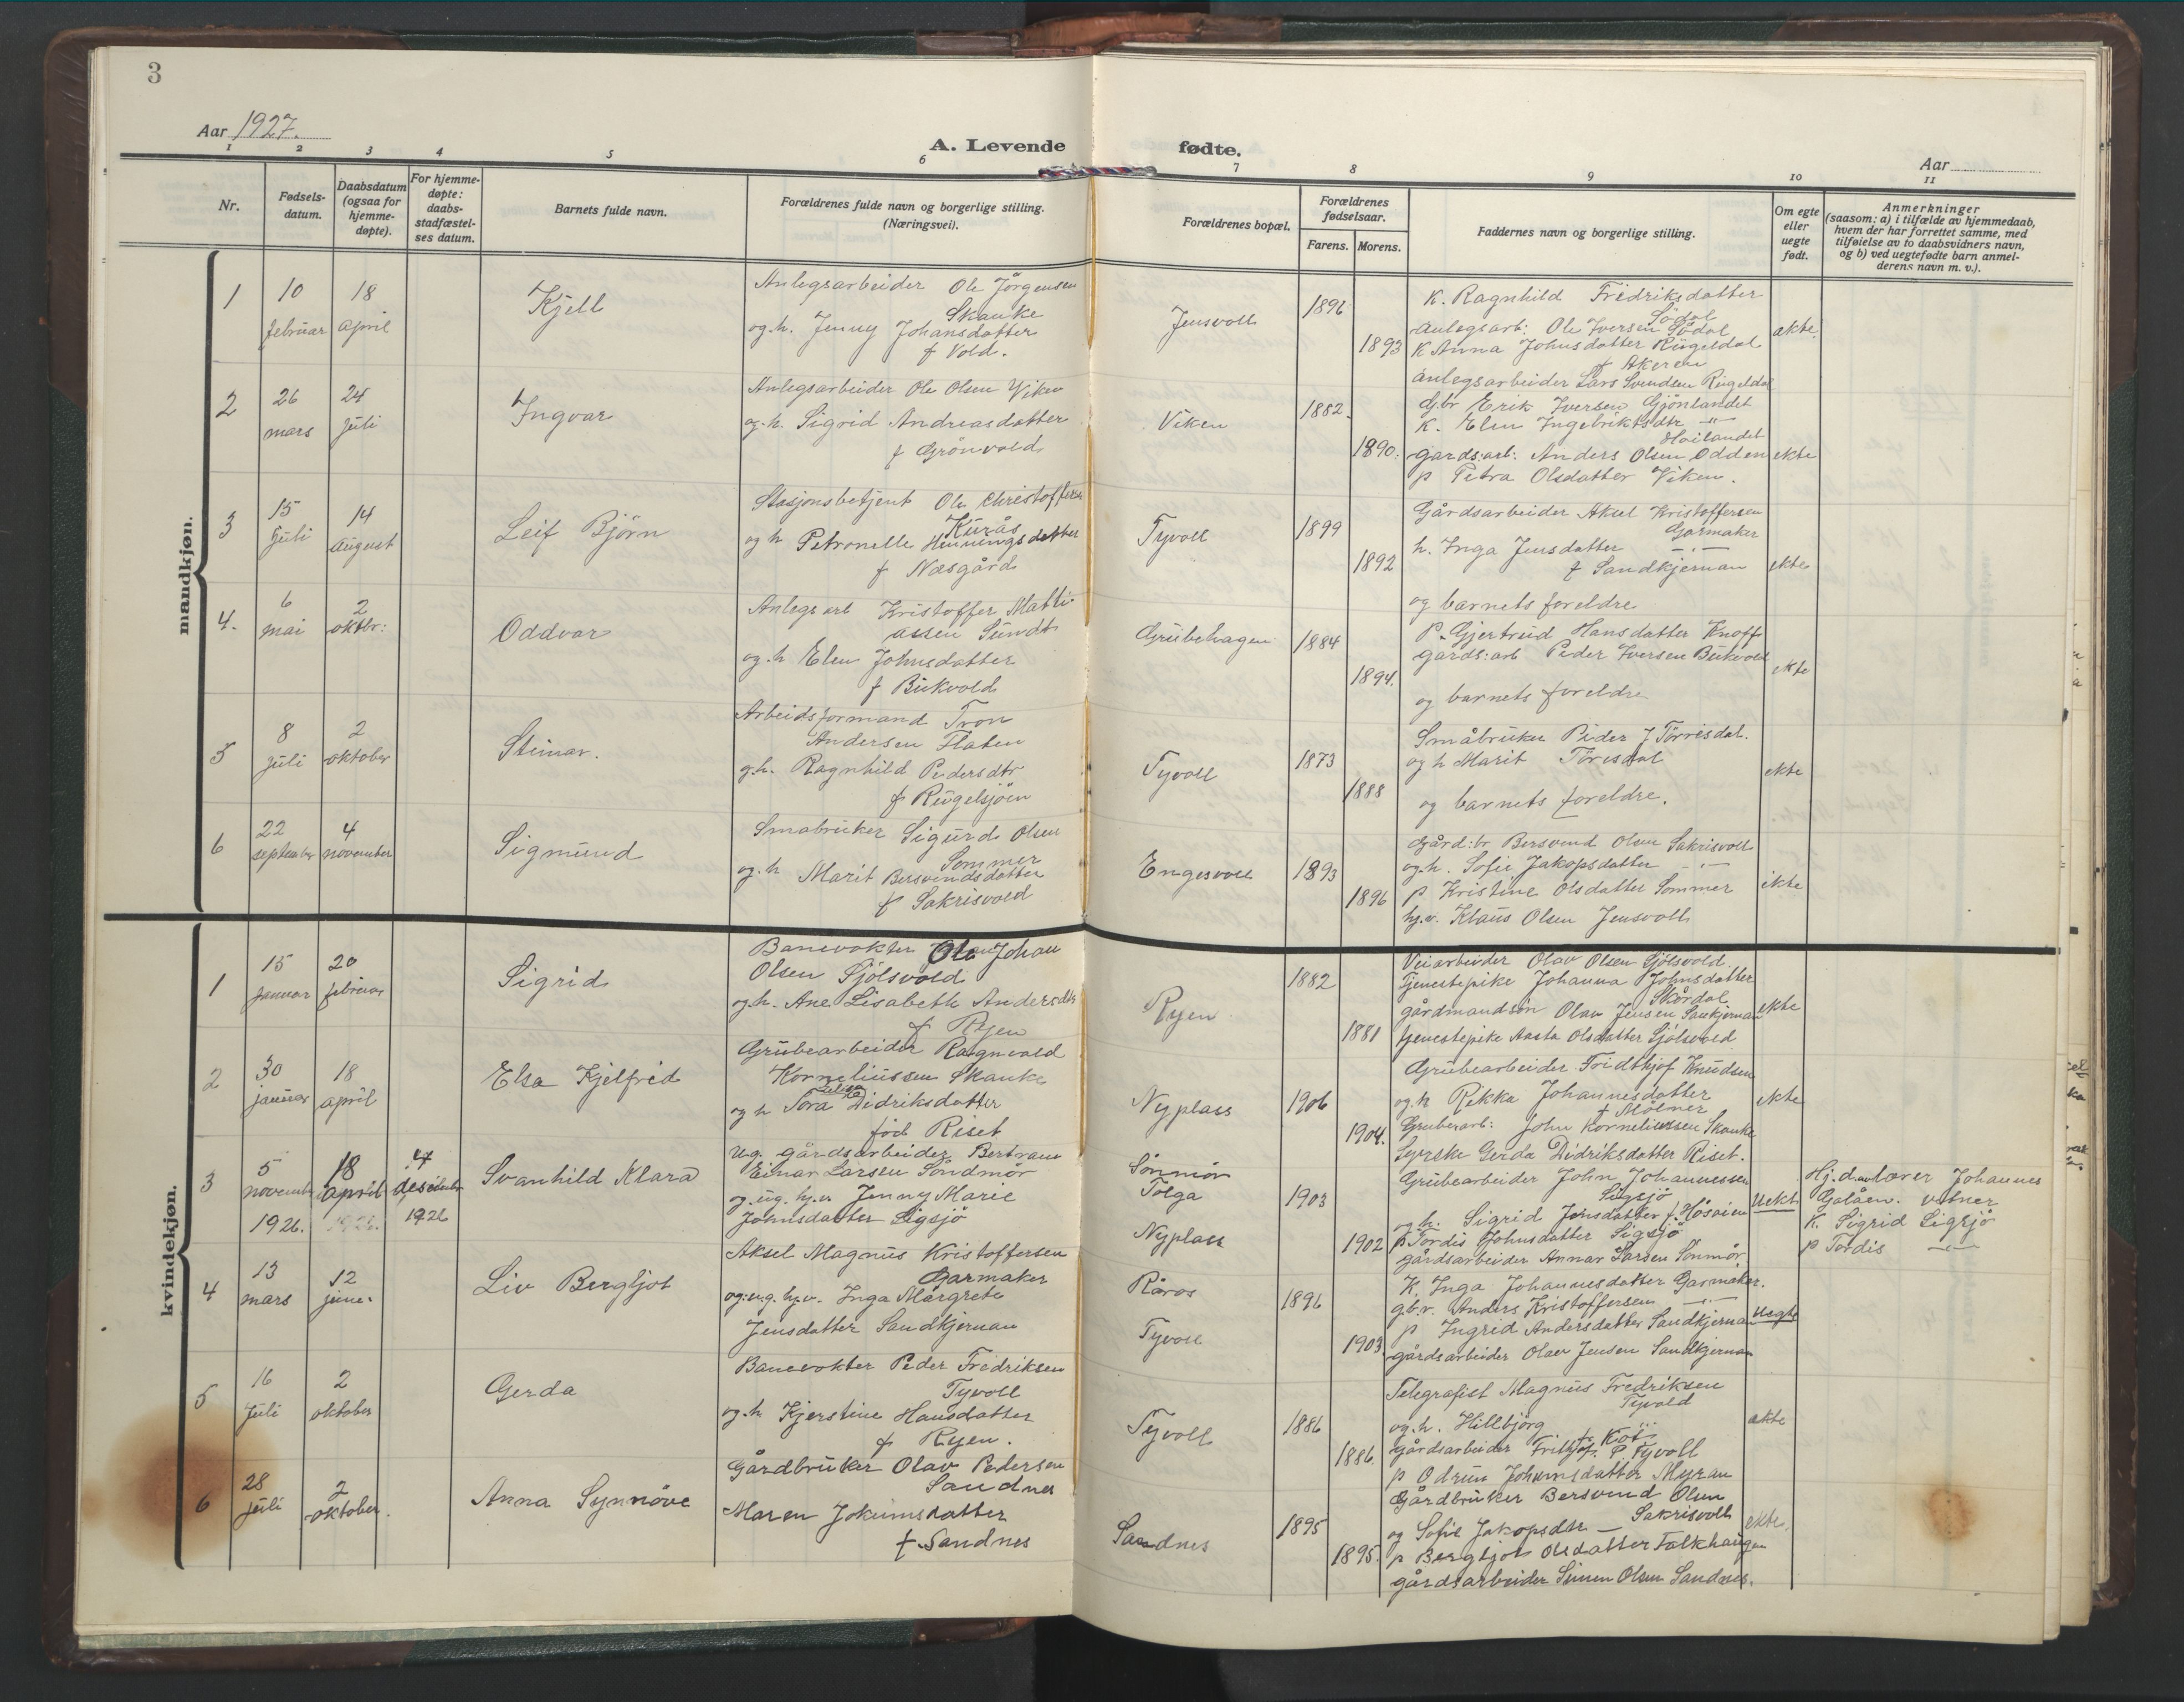 3
Aar 1927.
A. Levende fødte.
Aar
1 2 3 4 5 6 7 8 9 10 11
Nr.
Fødsels-
datum.
Daabsdatum
(ogsaa for
hjemme-
døpte).
For hjemme-
døpte:
daabs-
stadfæstel-
ses datum.
Barnets fulde navn.
Forældrenes fulde navn og borgerlige stilling.
(Næringsvei).
Forældrenes bopæl.
Forældrenes
fødselsaar.
Farens. Morens.
Faddernes navn og borgerlige stilling.
Om egte
eller
uegte
født.
Anmerkninger
(saasom: a) i tilfælde av hjemmedaab,
hvem der har forrettet samme, med
tilføielse av to daabsvidners navn,
og b) ved uegtefødte barn anmel-
derens navn m. v.).
mandkjøn.
1
10
februar
18
april
Kjell
Anlegsarbeider Ole Jørgensen
Skanke
og h. Jenny Johansdatter
f Vold.
Jensvoll
1896
1893
K. Ragnhild Fredriksdatter
Södal
anlegsarb: Ole Iversen Södal
K Anna Johnsdatter Rugeldal
f Akeren
anlegsarbeider Lars Svendsen Rugeldal
ekte
2
26
mars
24
juli
Ingvar
Anlegsarbeider Ole Olsen Viken
og h. Sigrid Andreasdatter
f Grönvold
Viken
1882.
1890.
Gbr Erik Iversen Gjönlandet
K. Elen Ingebriktsdtr -"-
Hoilandet
gards:arb: Anders Olsen Odden
p Petra Olsdatter Viken.
ekte
3
15
juli
14
august
Leif Björn
Stasjonsbetjent Ole Christoffersen
Kurås
og h Petronelle Henningsdatter
f Nesgård
Tyvoll
1899
1892
Gårdsarbeider Aksel Kristoffersen
Garmaker
h. Inga Jensdatter -"-
f Sandkjernan
og barnets foreldre
ekte
4.
6
mai
2
oktbr:
Oddvar
Anlegsarb Kristoffer Matti-
assen Sundt
og h Elen Johnsdatter
f Bukvold
Grubehagen
1884
1894.
P. Gjertrud Hansdatter Knoff
gards:arb Peder Iversen Bukvold
og barnets foreldre
ekte
5
8
juli
2
oktober
Steinar.
Arbeidsformand Tron
Andersen Flaten
g.h. Ragnhild Pedersdtr
f Rugelsjöen
Tyvoll
1873
1888
Småbruker Peder J Törrisdal.
og h Marit Törisdal
og barnets foreldre.
ekte
6
22
september
4
november
Sigmund
Smabruker Sigurd Olsen
Sommer
og h Marit Bersvendsdatter
f Sakrisvold
Engesvoll
1893
1896
Gård:br Bersvend Olsen Sakrisvoll
og h. Sofie Jakopsdatter -"-
p Kristine Olsdatter Sommer
hj.v. Klaus Olsen Jensvoll
ekte
kvindekjøn.
1
15
januar
20
februar
Sigrid
Banevokter Ole Johan
Olsen Sjölsvold
og h. Ane Lisabeth Andersdtr
f Ryen
Ryen
1882
1881
Veiarbeider Olav Olsen Sjölsvold
Tjenestepike Johanna Johnsdatter
Skårdal
gårdmandsön Olav Jensen Sandkjernan
tjenestepike Aasta Olsdatter Sjölsvold
ekte
2
30
januar
18
april
Elsa Kjelfrid
Grubearbeider Ragnvald
Korneliussen Skanke
og h Tora Didriksdatter
föd Riset
Nyplass
1906
1904.
Grubearbeider Fridthjof Knudsen
og h Rikka Johannesdatter
f Mölner
Grubearb: John Korneliussen Skanke
Syerske Gerda Didriksdatter Riset.
ekte
3
5
november
1926.
18
april
4
desember
1926
Svanhild Klara
Ug. gårdsarbeider Bertram
Einar Larsen Söndmör
og ug. hj.v Jenny Marie
Johnsdatter Sigsjö
Sönmör
Tolga
Nyplass
1903
1902
Grubearbeider John Johannessen
Sigsjö
og h. Sigrid Jonsdatter f. Hösöien
p Tordis Johnsdatter Sigsjö
gårdsarbeider Annar Larsen Sönmör
Uekt.
Hj.d.av lærer Johannes
Galåen. vitner
K. Sigrid Sigsjö
p Tordis -"-
4
13
mars
12
june.
Liv Bergljot
Aksel Magnus Kristoffersen
Garmaker
og ug. hj.v. Inga Margrete
Jensdatter Sandkjernan
Röros
Tyvoll
1896
1903.
K. Inga Johannesdatter Garmaker.
gbr. Anders Kristoffersen -"-
p Ingrid Andersdatter Sandkjernan
gårdsarbeider Olav Jensen Sandkjernan
Uegte
5
16
juli
2
oktober
Gerda
Banevokter Peder Fredriksen
Tyvoll
og h. Kjerstine Hansdatter
f Ryen.
Tyvoll
1886
1886.
Telegrafist Magnus Fredriksen
Tyvold
og h. Hillebjörg
gårdsarbeider Frithjof P Tyvoll
p Odrun Johannsdatter Myran
ekte
6
28
juli
2
oktober.
Anna Synnöve
Gårdbruker Olav Pedersen
Sandnes
Maren Jokumsdatter
f. Sandnes
Sandnes
1895
1895.
Gårdbruker Bersvend Olsen
Sakrisvoll
og Sofie Jakopsdtr -
p Bergljot Olsdatter Falkhaugen
gårdsarbeider Simen Olsen Sandnes.
ekte.